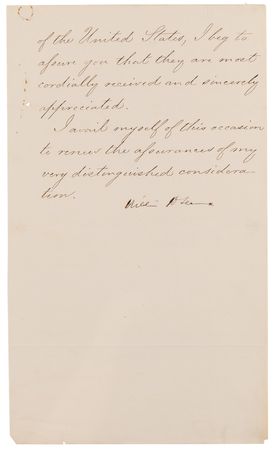 of the United States, I beg to
assure you that they are most
cordially received and sincerely
appreciated.
I avail myself of this occasion
to renew the assurances of my
very distinguished considera
tion.